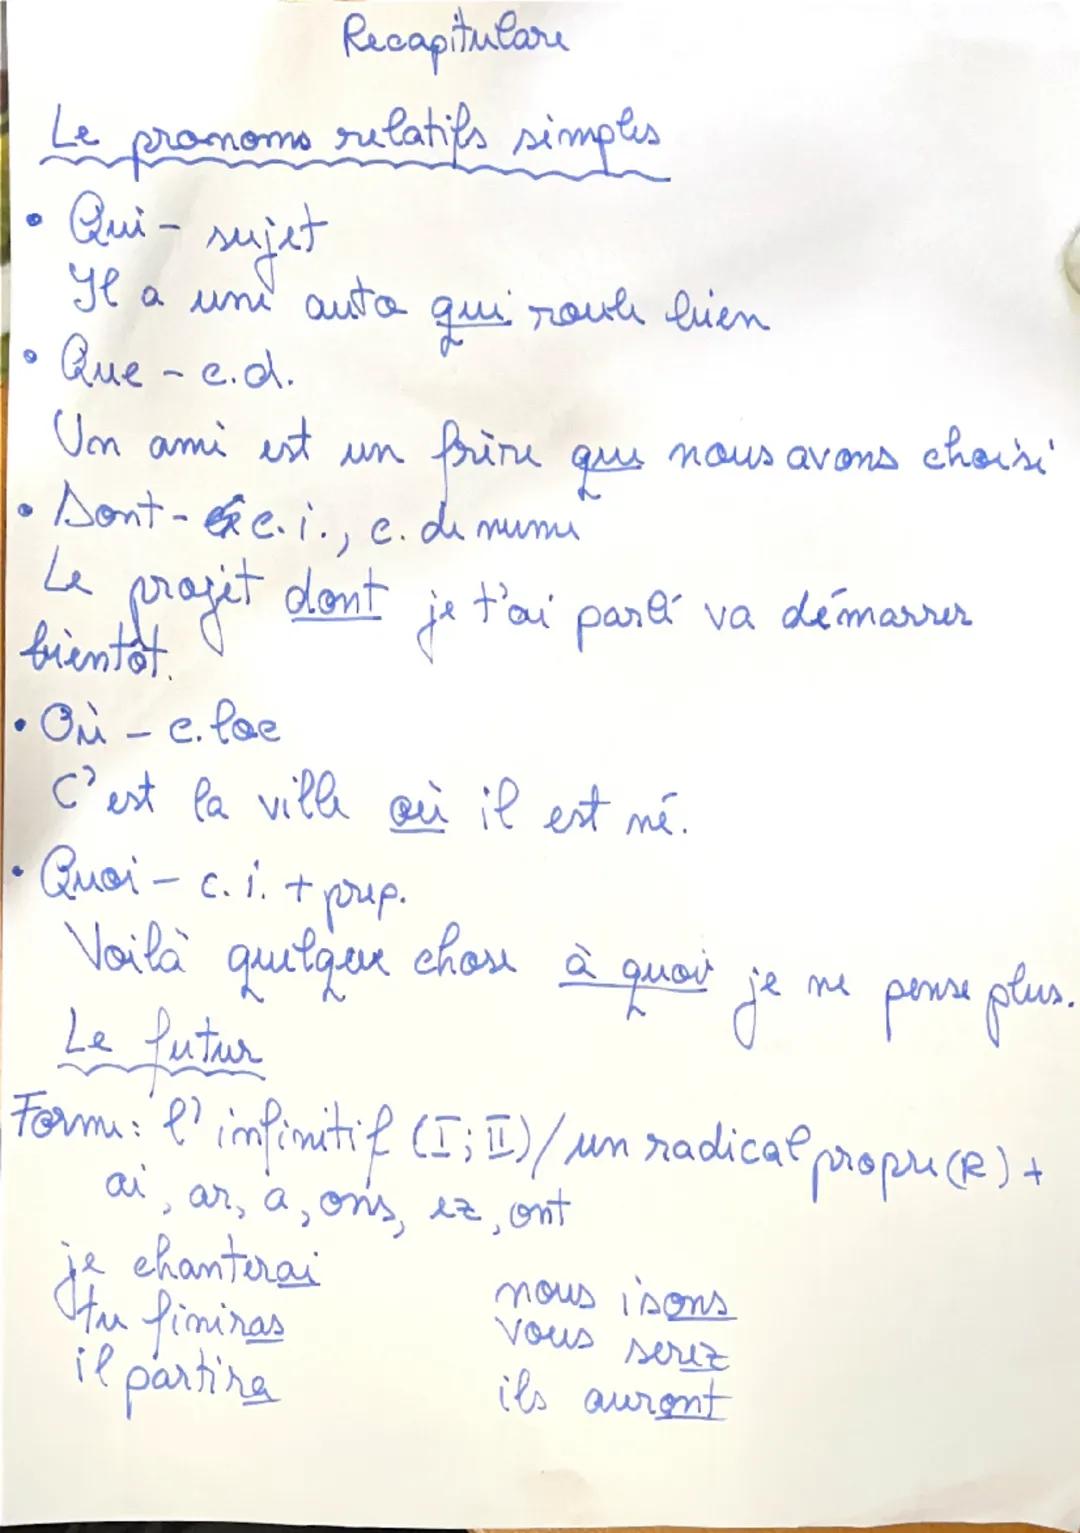 Recapitulare
Le pronoms relatifs simples
• Qui - sujet
Il a une auto qui roule bien
• Que - c.d.
Un ami est un frère que nous avons choisi
• Dont - c.i., c. de nume
Le projet dont je t'ai parlé va démarrer
bientôt.
• Où - c. loc
C'est la ville où il est né.
• Quoi - c. i. + prep.
Voilà quelque chose à quoi je ne pense plus.
Le futur
Forme: l'infinitif (I; II)/un radical propre (R) +
ai, as, a, ons, ez, ont
je chanterai
tu finiras
il partira
nous irons
vous serez
ils auront